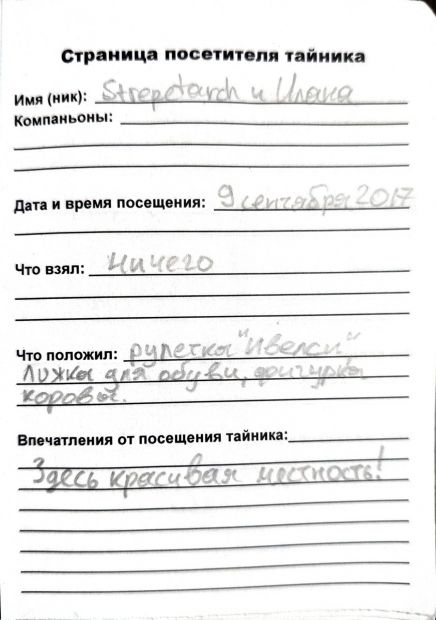 Страница посетителя тайника
Имя (ник): Strepetarch и Илана
Компаньоны:
Дата и время посещения: 9 сентября 2017
Что взял: Ничего
Что положил: рулетка "Ивелси",
Ложка для обуви, фигурка
коровы.
Впечатления от посещения тайника:
Здесь красивая местность!